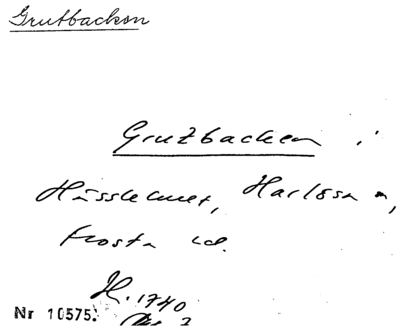 Grutbacken
Grutbacken i
Hässlehult, Harlösa s n,
Frosta hd.
H. 1740
Nr 10575.